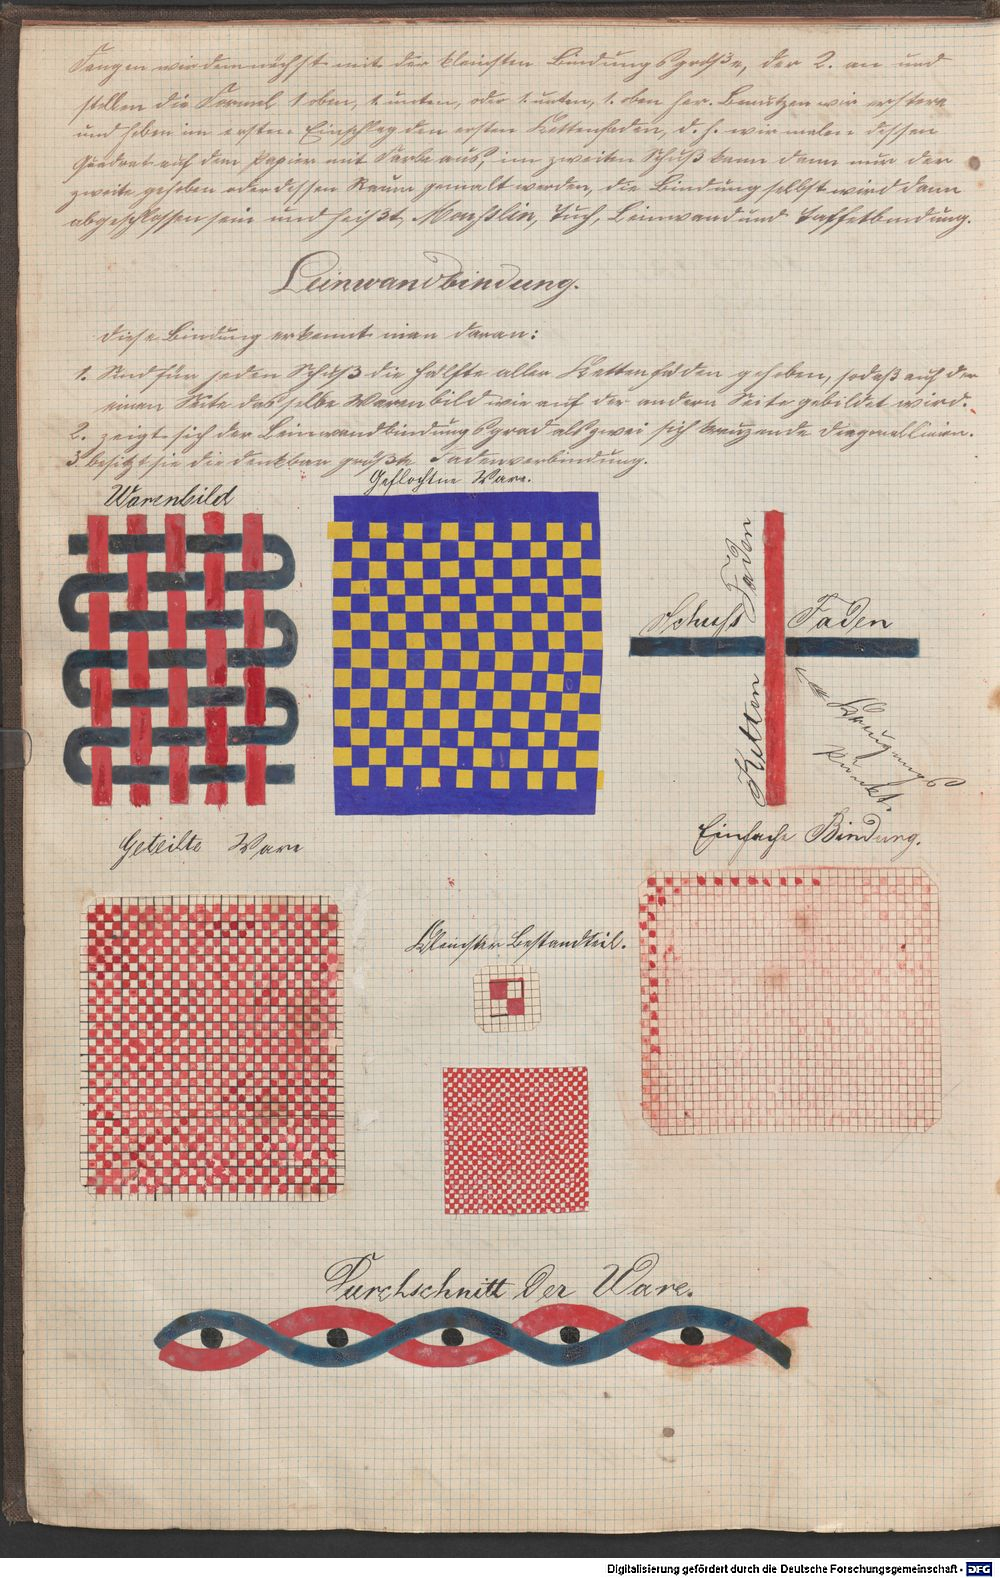 Fangen wir demnächst mit der kleinsten Bindungsgröße, der 2. an und
stellen die Formel 1 oben, 1 unten, oder 1 unten, 1 oben her. Benutzen wir erstere
und heben im ersten Einschlag den ersten Kettenfaden, d. h. wir malen dessen
Quadrat auf dem Papier mit Farbe aus, im zweiten Schuß kann dann nur der
zweite gehoben oder dessen Raum gemalt werden, die Bindung selbst wird dann
abgeschlossen sein und heißt, Tuch, Leinwand und Taffetbindung.
Leinwandbindung.
Diese Bindung erkennt man daran:
1. Sind für jeden Schuß die Hälfte aller Kettenfäden gehoben, sodaß auf der
einen Seite dasselbe Warenbild wie auf der andern Seite gebildet wird.
2. zeigt sich der Leinwandbindungsgrad als zwei sich kreuzende Diagonallinien.
3. besitzt sie die denkbar größte Fadenverbindung.
Warenbild
Geflochtne Ware.
Schuss Faden
Ketten Faden
Kreuzungs
Punkt.
Geteilte Ware
Einfache Bindung.
Kleinster Bestandteil.
Durchschnitt der Ware.
Digitalisierung gefördert durch die Deutsche Forschungsgemeinschaft - DFG